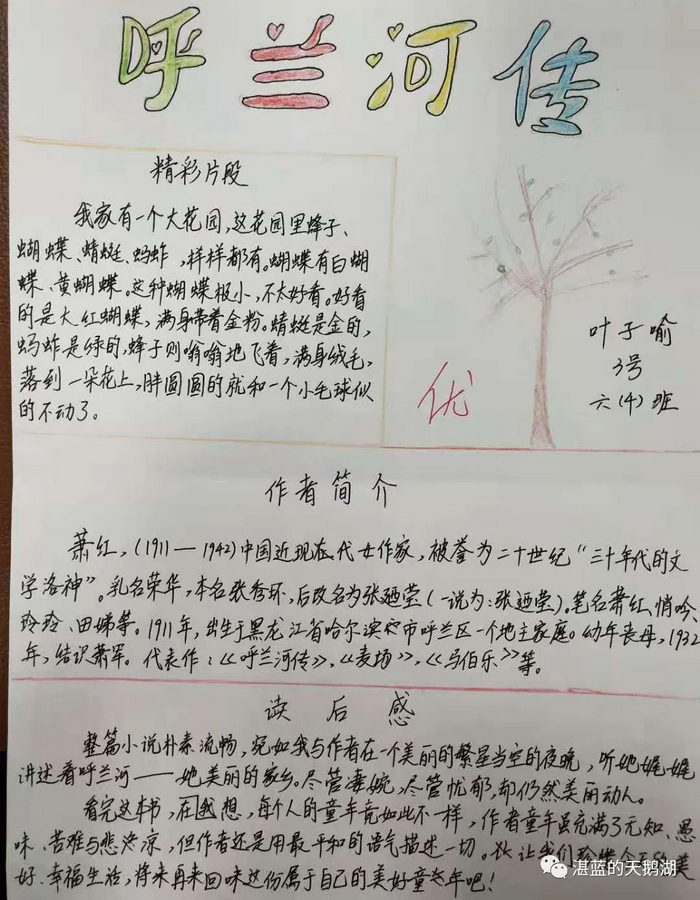 呼兰河传
精彩片段
我家有一个大花园,这花园里蜂子、
蝴蝶、蜻蜓、蚂蚱,样样都有。蝴蝶有白蝴
蝶、黄蝴蝶。这种蝴蝶极小,不太好看。好看
的是大红蝴蝶,满身带着金粉。蜻蜓是金的,
蚂蚱是绿的,蜂子则嗡嗡地飞着,满身绒毛,
落到一朵花上,胖圆圆的就和一个小毛球似
的不动了。
优
叶子喻
3号
六(4)班
作者简介
萧红,(1911—1942)中国近现在代女作家,被誉为二十世纪“三十年代的文
学洛神”。乳名荣华,本名张秀环,后改名为张廼莹(一说为:张迺莹)。笔名萧红、悄吟、
玲玲、田娣等。1911年,出生于黑龙江省哈尔滨市呼兰区一个地主家庭。幼年丧母,1932
年,结识萧军。代表作:《呼兰河传》,《麦场》,《马伯乐》等。
读后感
整篇小说朴素流畅,宛如我与作者在一个美丽的繁星当空的夜晚,听她娓娓
讲述着呼兰河——她美丽的家乡。尽管凄婉,尽管忧郁,却仍然美丽动人。
看完这本书,在我想,每个人的童年竟如此不一样,作者童年虽充满了无知、愚
昧、苦难与悲凉,但作者还是用最平和的语气描述一切。让我们珍惜今的美
好、幸福生活,将来再来回味这份属于自己的美好童年吧!
湛蓝的天鹅湖